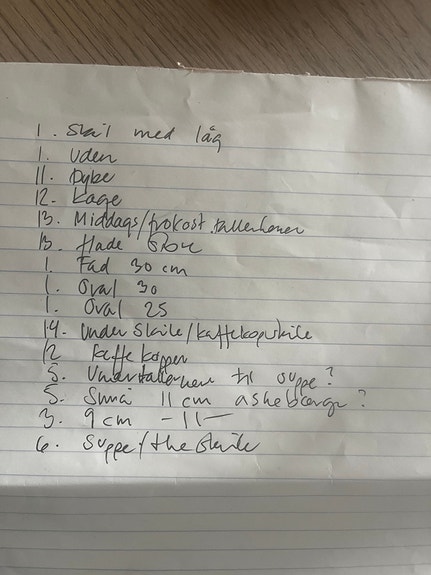 1. Skål med låg
1. Uden
11. Dybe
12. Kage
13. Middags/frokost.tallerkener
13. flade Store
1. Fad 30 cm
1. Oval 30
1. Oval 25
14. Under Skåle/kaffekopskåle
12 kaffe kopper
5. Undertallerkener til suppe?
5. Små 11 cm askebæger?
3. 9 cm - 11 -
6. Suppe/the Skåle